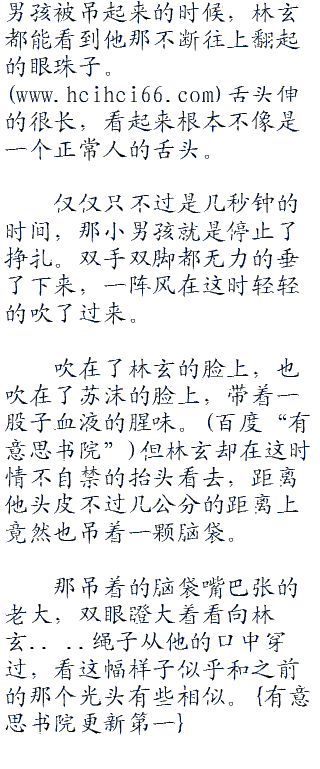 男孩被吊起来的时候，林玄
都能看到他那不断往上翻起
的眼珠子。
(www.hcihci66.com)舌头伸
的很长，看起来根本不像是
一个正常人的舌头。
仅仅只不过是几秒钟的
时间，那小男孩就是停止了
挣扎。双手双脚都无力的垂
了下来，一阵风在这时轻轻
的吹了过来。
吹在了林玄的脸上，也
吹在了苏沫的脸上，带着一
股子血液的腥味。(百度“有
意思书院”)但林玄却在这时
情不自禁的抬头看去，距离
他头皮不过几公分的距离上
竟然也吊着一颗脑袋。
那吊着的脑袋嘴巴张的
老大，双眼瞪大着看向林
玄.. ..绳子从他的口中穿
过，看这幅样子似乎和之前
的那个光头有些相似。{有意
思书院更新第一}